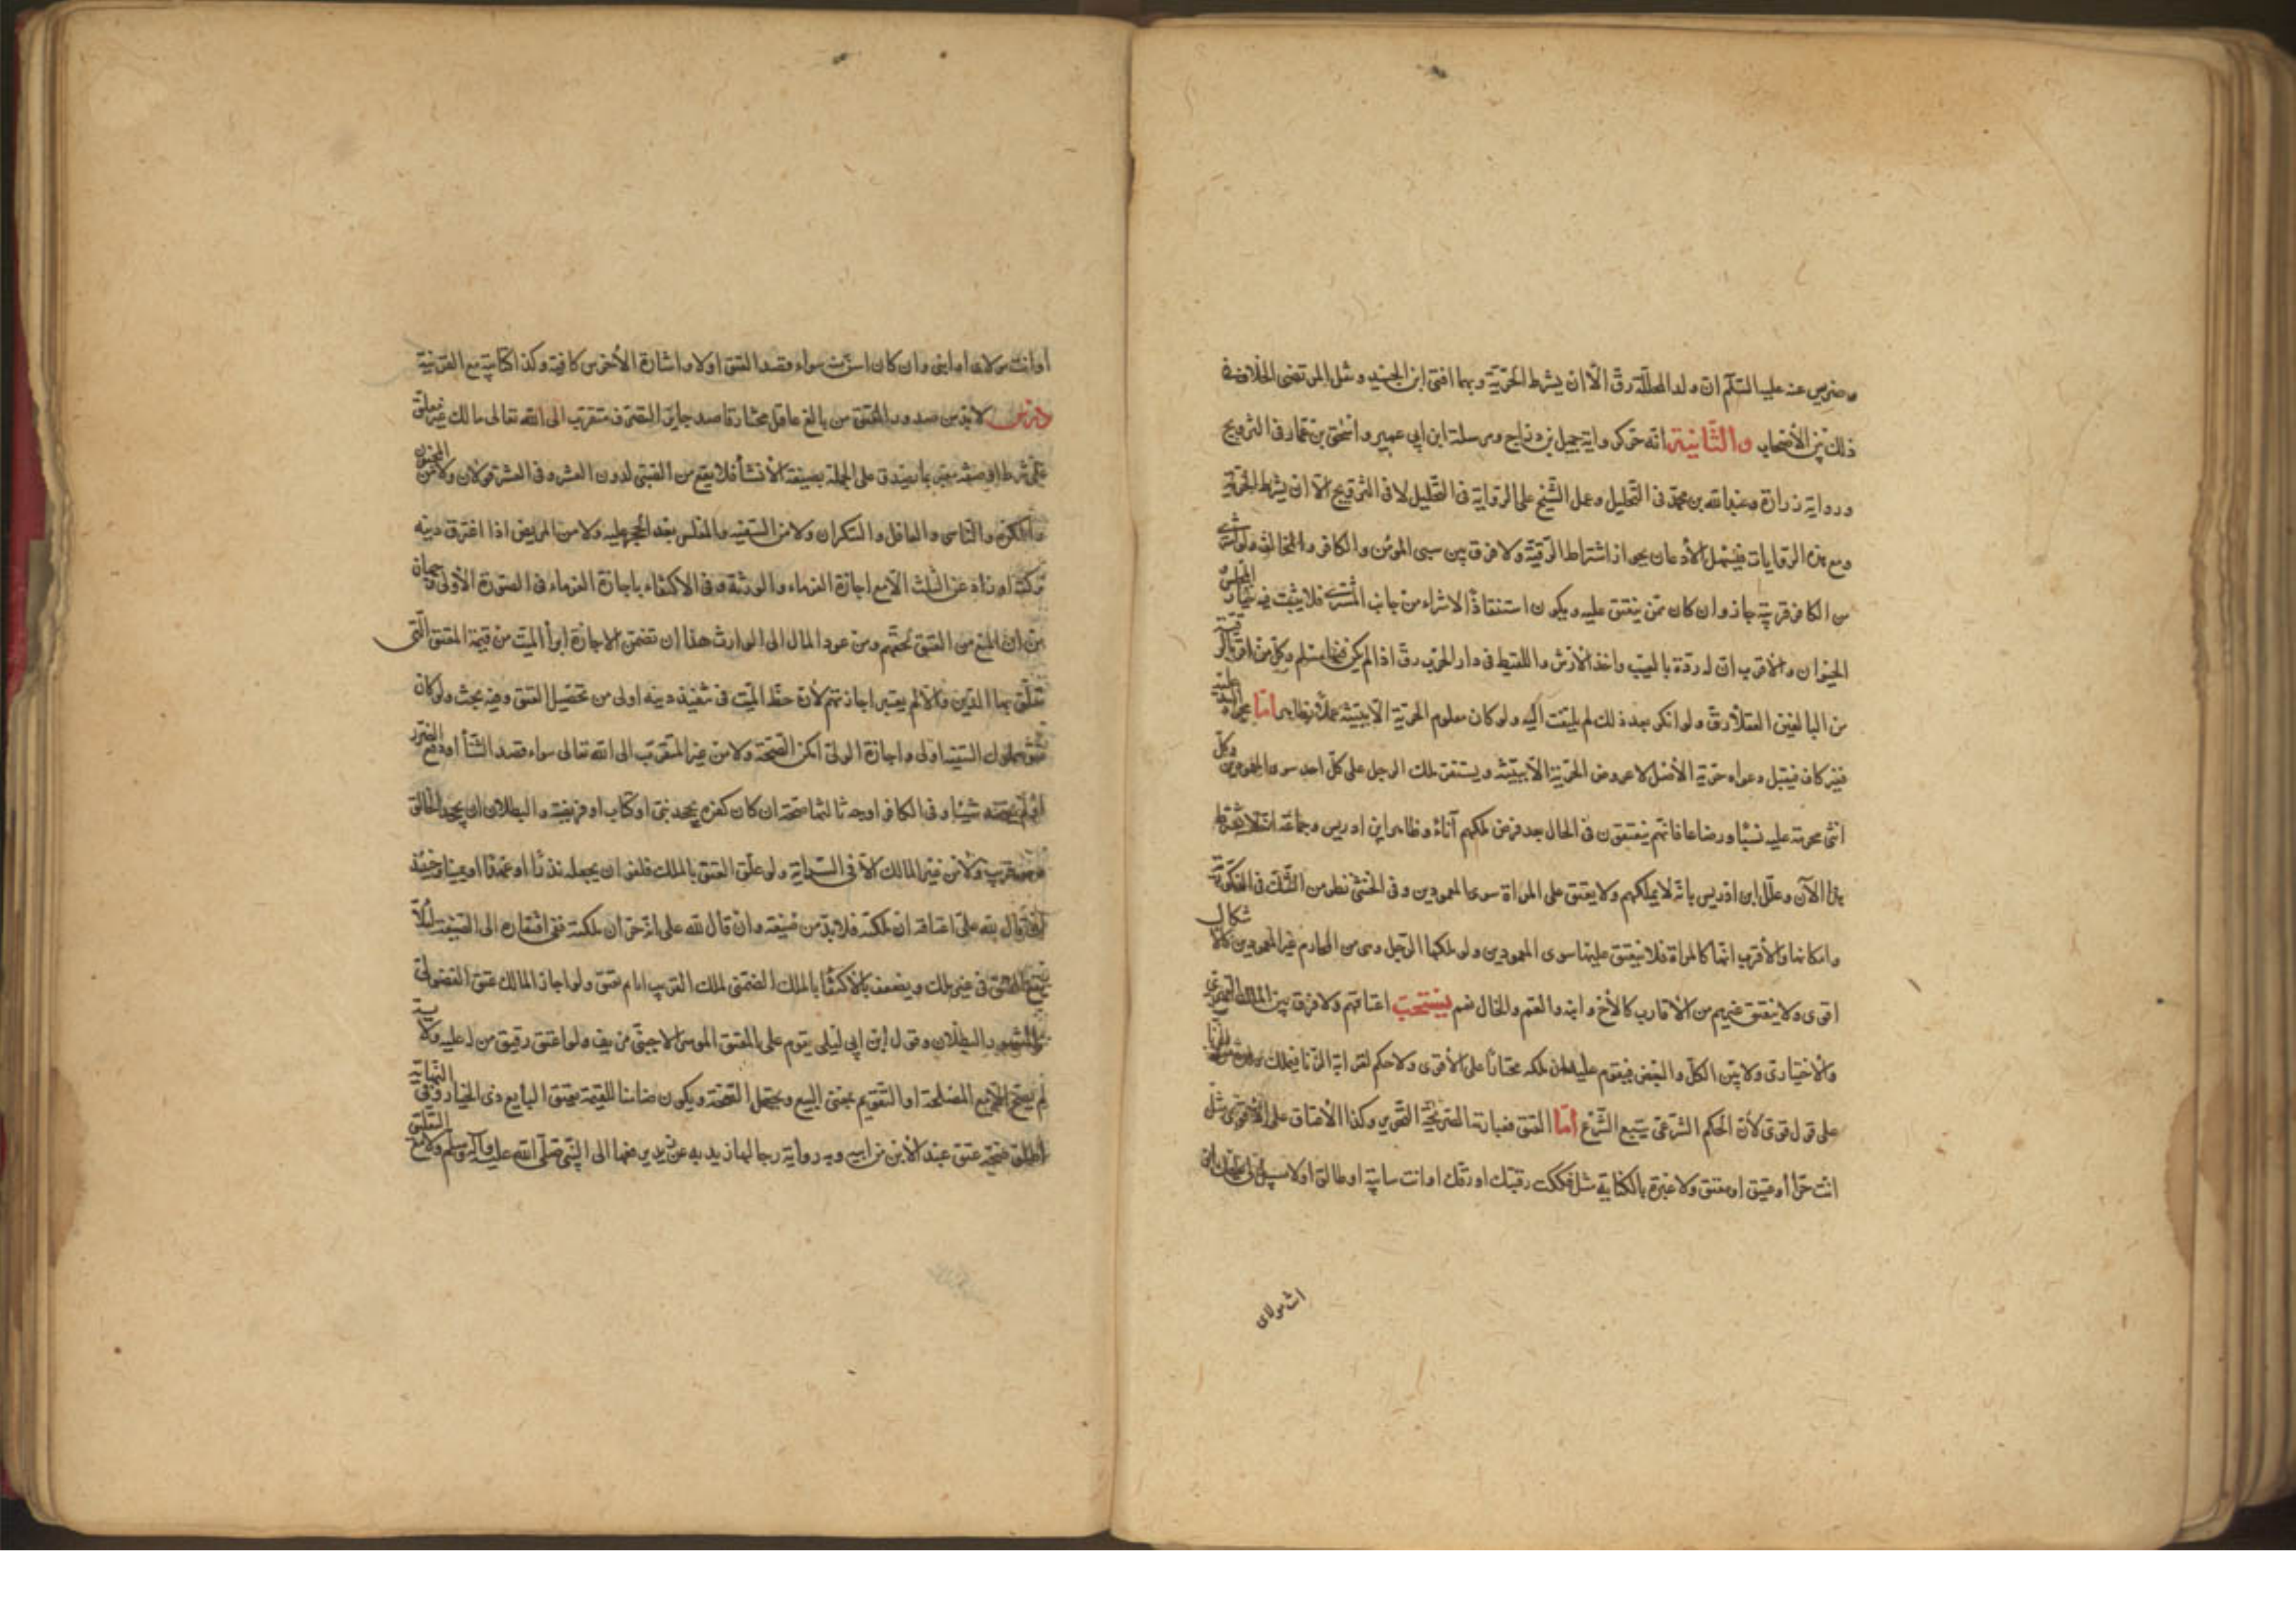 وضريس عنه عليه السلام ان ولد المحللة رق الا ان يشرط الحرية وبها افتى ابن الجنيد ونقل المرتضى الخلاف في
ذلك بين الأصحاب والثانية انه حر كرواية جميل بن دراج ومرسلة ابن ابي عمير واسحق بن عمار في التزويج
ورواية زرارة وعبدالله بن محمد في التحليل وعمل الشيخ على الرواية في التحليل لا في التزويج الا ان يشرط الحرية
ومع هذه الروايات فيشمل الأذعان بجواز اشتراط الرقية ولا فرق بين سبي المؤمن والكافر والمخالف ولو اشترى
من الكافر قريبه جاز وان كان ممن ينعتق عليه ويكون استنقاذا لا شراء من جانب المشتري فلا يثبت فيه خيار المجلس و
الحيوان والأقرب ان له رده بالعيب واخذ الأرش واللقيط في دار الحرب رق اذا لم يكن فيها مسلم وكل من اقر بالرقية
من البالغين العقلاء رق ولو انكر بعد ذلك لم يلتفت اليه ولو كان معلوم الحرية الا ببينة عملا بظاهر اما
فيقبل دعواه حرية الأصل لا عروض الحرية الا ببينة ويستقر ملك الرجل على كل احد سوى العمودين وكل
انثى محرمة عليه نسبا ورضاعا فانهم ينعتقون في الحال بعد فرض ملكهم آنا وظاهر ابن ادريس وجماعة
هذا الآن وعلل ابن ادريس بانه لا يملكهم ولا يعتق على المراة سوى العمودين وفي الخنثى نظر من الشك في الذكورية
وامكانها والأقرب انها كالمراة فلا ينعتق عليها سوى العمودين ولو ملكها الرجل وهي من المحارم غير العمودين فالاشكال
اقوى ولا ينعتق غيرهم من الأقارب كالأخ وابنه والعم والخال نعم يستحب اعتاقهم ولا فرق بين الملك القهري
والأختياري ولا بين الكل والبعض فيقوم عليه ان ملكه مختارا على الأقوى ولا حكم لقرابة الزنا فيملك
على قول قوي لأن الحكم الشرعي يتبع الشرع اما العتق فعبارته الصريحة التحرير وكذا الأعتاق على الأقوى مثل
انت حر او عتيق او معتق ولا عبرة بالكناية مثل فككت رقبتك او رقك او انت سايبة او طالق او لا سبيل لي عليك
انت مولاي
او انت مولاي او ابني وان كان اسن منه سواء قصد العتق اولا واشارة الأخرس كافية وكذا كتابته مع القرينة
درس لا بد من صدور العتق من بالغ عاقل مختار قاصد جايز التصرف متقرب الى الله تعالى مالك غير معلق
على شرط او صفة معتبر بما يصدق على الجملة بصيغة الأنشاء فلا يقع من الصبي لدون العشر وفي العشر قولان ولا من المجنون
والمكره والناسي والغافل والسكران ولا من السفيه والمفلس بعد الحجر عليه ولا من المريض اذا اغترق دينه
تركته او زاد عن الثلث الا مع اجازة الغرماء والورثة وفي الاكتفاء باجازة الغرماء في الصورة الأولى وجهان
من ان المنع من العتق لحقهم ومن عود المال الى الوارث هذا ان تضمن الاجازة ابراء الميت من قيمة المعتق التي
تعلق بها الدين والا لم يعتبر اجازتهم لأن حظ الميت في تنفيذ دينه اولى من تحصيل العتق وفيه بحث ولو كان
عتق مملوك السفيه اولى واجازة الولي امكن الصحة ولا من غير المتقرب الى الله تعالى سواء قصد الثناء او دفع الضرر
او لم يقصد شيئا وفي الكافر اوجه ثالثها صحته ان كان كفره بجحد نبي او كتاب او فريضة والبطلان ان يجحد الخالق
وهو قريب ولا من غير المالك الا في السراية ولو علق العتق بالملك فلغو ان يجعله نذرا او عهدا او يمينا وحينئذ
اذا قال لله علي اعتاقه ان ملكته فلا بد من صيغة وان قال لله علي انه حر ان ملكته ففي افتقاره الى الصيغة لئلا
يقع العتق في غير ملك ويضعف بالأكتفاء بالملك الضمني لملك القريب اما م يعتق ولو اجاز المالك عتق الفضولي
فالمشهور البطلان وقول ابن ابي ليلى يقوم على المعتق الموسر الاجنبي مزيف ولو اعتق رقيق من له عليه ولاية
لم يصح الا مع المصلحة او التقويم بمعنى البيع ويحتمل الصحة ويكون ضامنا للقيمة كعتق البايع ذي الخيار وفي النهاية
اطلق صحة عتق عبد الأبن من ابيه وبه رواية رجالها زيدية عن زيد يرفعها الى النبي صلى الله عليه وآله وسلم ولا مع التعليق